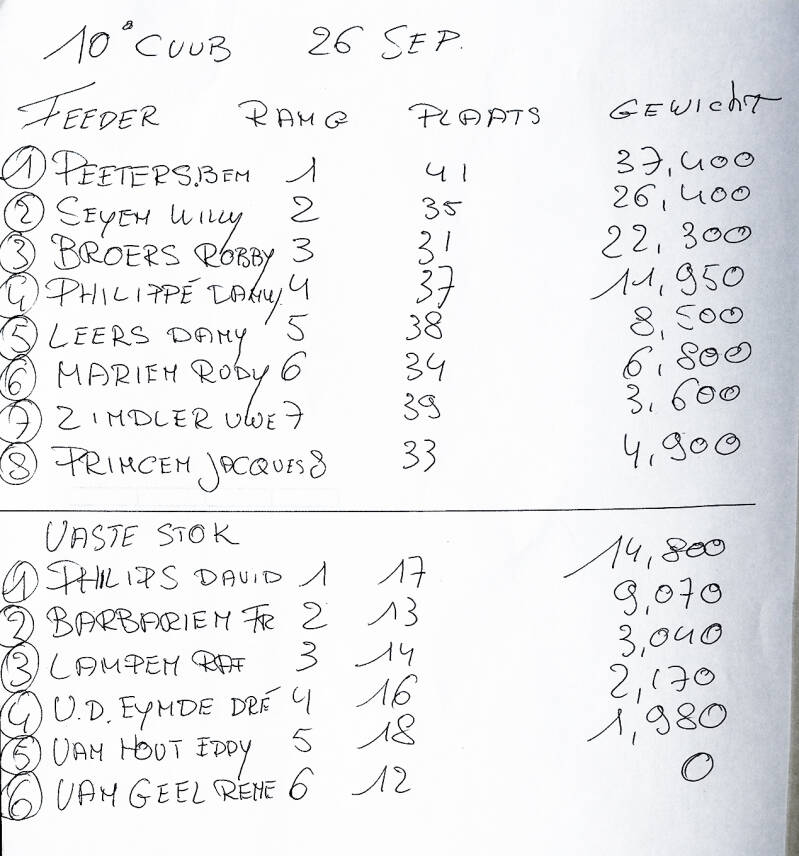 10e CLUB 26 SEP.
FEEDER RANG PLAATS GEWICHT
1 PEETERS.BEN 1 41 37,400
2 SEYEN WILLY 2 35 26,400
3 BROERS ROBBY 3 31 22,300
4 PHILIPPÉ DANNY 4 37 11,950
5 LEERS DANY 5 38 8,500
6 MARIEN RODY 6 34 6,800
7 ZINDLER UWE 7 39 3,600
8 PRINCEN JACQUES 8 33 4,900
VASTE STOK
1 PHILIPS DAVID 1 17 14,800
2 BARBARIEN FR 2 13 9,070
3 LAMPEN RAF 3 14 3,040
4 V.D. EYNDE DRÉ 4 16 2,170
5 VAN HOUT EDDY 5 18 1,980
6 VAN GEEL RENE 6 12 0